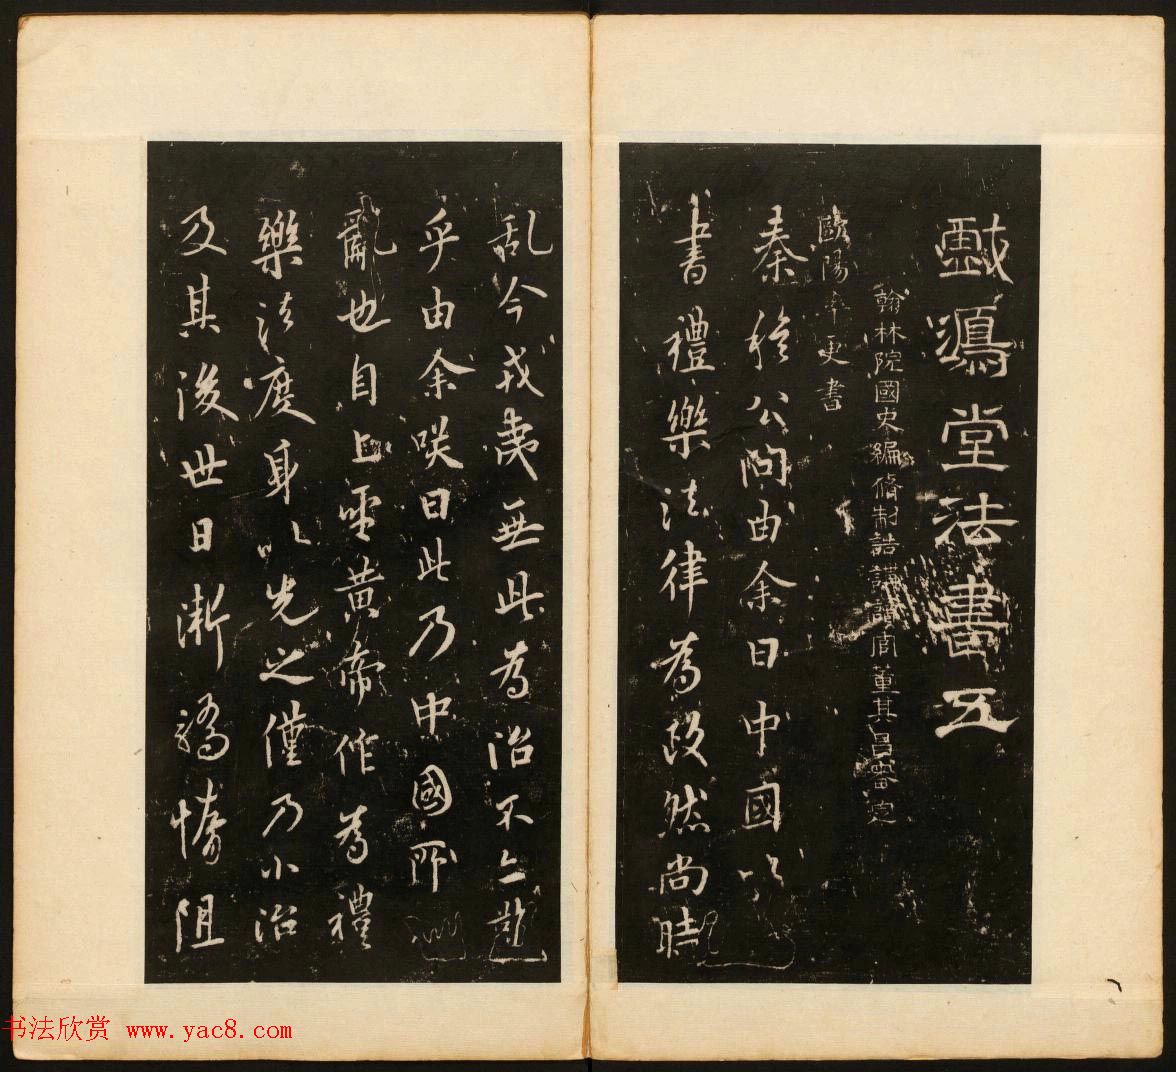 戲鴻堂法書五
翰林院國史編脩制誥講讀官董其昌審定
歐陽率更書
秦穆公問由余曰中國以
書禮樂法律為政然尚時
乱今戎夷無此為治不亦難
乎由余咲曰此乃中國所
亂也自上聖黃帝作為禮
樂法度身以先之僅乃小治
及其後世日漸驕惰阻
书法欣赏 www.yac8.com